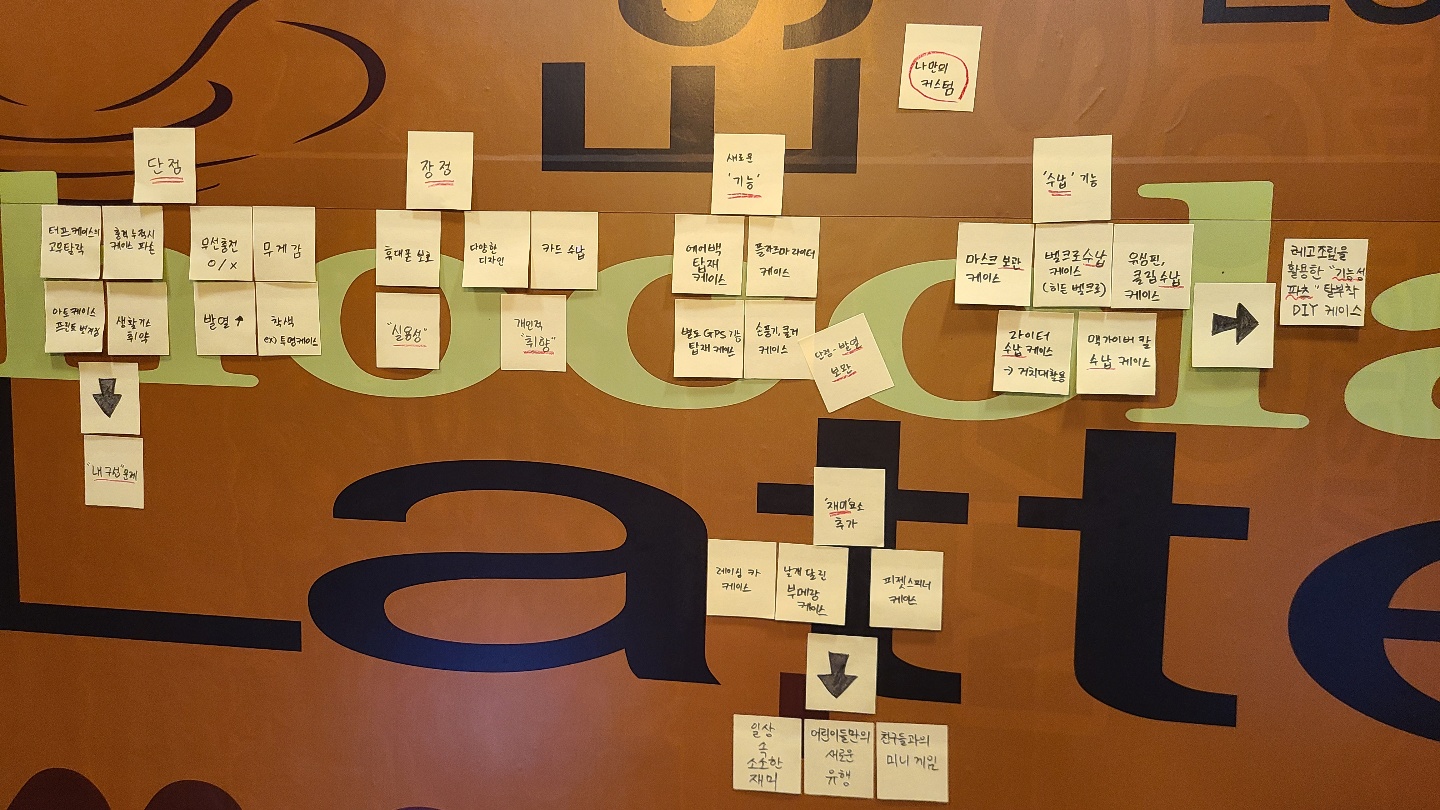 나만의
커스텀
단점
터프 케이스의
고무탈락
충격 누적시
케이스 파손
무선충전
O/X
무게감
아트케이스
프린트 벗겨짐
생활기스
취약
발열 ↑
착색
ex) 투명케이스
"내구성" 문제
장점
휴대폰 보호
다양한
디자인
카드 수납
"실용성"
개인적
"취향"
새로운
'기능'
에어백
탑재
케이스
플라즈마 라이터
케이스
별도 GPS 기능
탑재 케이스
손풍기, 쿨러
케이스
단점 - 발열
보완
'수납' 기능
마스크 보관
케이스
벨크로 수납
케이스
(히든 벨크로)
유심핀,
클립 수납
케이스
라이터
수납 케이스
→ 거치대활용
맥가이버 칼
수납 케이스
레고조립을
활용한 "기능성
파츠" 탈부착
DIY 케이스
'재미'요소
추가
레이싱 카
케이스
날개 달린
부메랑
케이스
피젯스피너
케이스
일상
속
소소한
재미
어린이들만의
새로운
유행
친구들과의
미니 게임
Latte